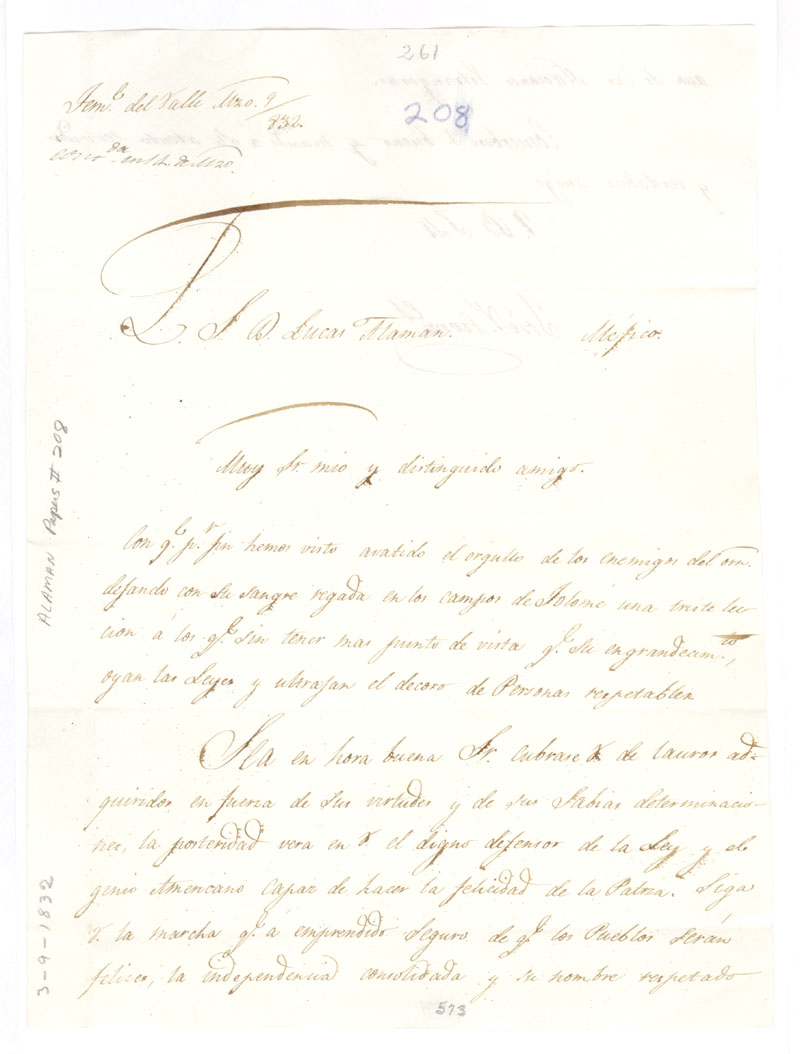 261
208
Tem.e del Valle Mzo. 9/832.
en 14. de Mzo.
S. D. Lucas Alaman. Méjico.
Muy Sr. mio y distinguido amigo.
Con q.e p.r fin hemos visto avatido el orgullo de los enemigos del orn.
dejando con su sangre regada en los campos de Tolome una triste lec
cion á los q.e sin tener mas punto de vista q.e su engrandecim.to,
oyan las Leyes y ultrajan el decoro de Personas respetables
Sea en hora buena Sr. cubrase V de lauros ad-
quiridos en fuerza de sus virtudes y de sus Sabias determinacio-
nes, la posteridad vera en V el digno defensor de la Ley y el
genio Americano capaz de hacer la felicidad de la Patria. Siga
V. la marcha q.e á emprendido Seguro de q.e los Pueblos serán
felices, la independencia consolidada y su nombre respetado
573
ALAMAN Papers # 208
3-9-1832